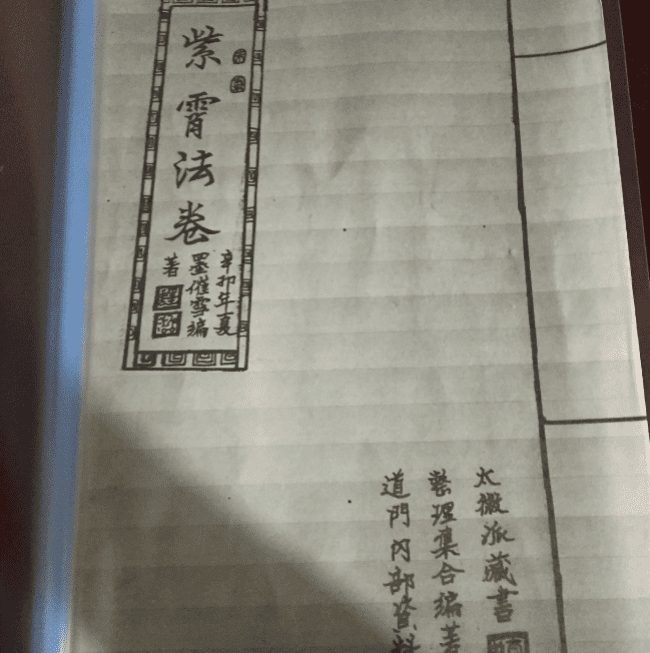 紫霄法卷
辛卯年夏
墨催雪編
著
太微派藏書
整理集合編著
道門內部資料